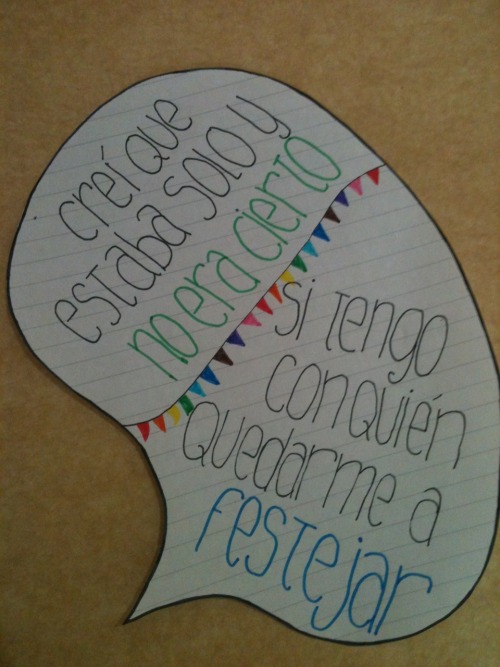 creí que
estaba solo y
no era cierto
si tengo
con quién
quedarme a
festejar